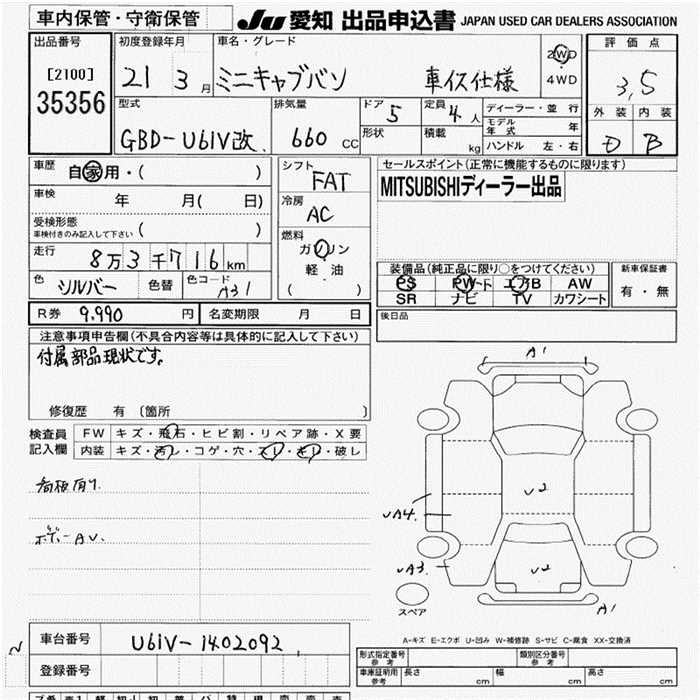 車内保管・守衛保管
JU 愛知 出品申込書 JAPAN USED CAR DEALERS ASSOCIATION
出品番号
[2100]
35356
初度登録年月
21 3月
車名・グレード
ミニキャブバン 車イス仕様
2WD
4WD
評価点
3,5
外装 内装
D B
型式
GBD-U61V改
排気量
660 CC
ドア
5
形状
定員
4人
積載
kg
ディーラー・並行
モデル年式 年
ハンドル 左・右
車歴
自家用・( )
車検
年 月( 日)
受検形態
車検付きのみ記入して下さい ( )
走行
8万3千716km
色
シルバー
色替
色コード
A31
シフト
FAT
冷房
AC
燃料
ガソリン
軽油
( )
セールスポイント(正常に機能するものに限ります)
MITSUBISHIディーラー出品
装備品(純正品に限り○をつけてください)
PS PW エアB AW
SR ナビ TV カワシート
新車保証書
有・無
R券 9.990 円
名変期限 月 日
後日品
注意事項申告欄(不具合内容等は具体的に記入して下さい)
付属部品現状です。
修復歴 有〔箇所 〕
検査員記入欄
FW キズ・飛石・ヒビ割・リペア跡・X要
内装 キズ・汚レ・コゲ・穴・スレ・キレ・破レ
看板有り.
ボデーAU.
A1
U2
UA4.
UA3.
U2
A1
スペア
A-キズ E-エクボ U-凹み W-補修跡 S-サビ C-腐食 XX-交換済
車台番号
U61V-1402092
登録番号
形式指定番号
参考
類別区分番号
参考
車庫証明用
参考
長さ cm 幅 cm 高さ cm